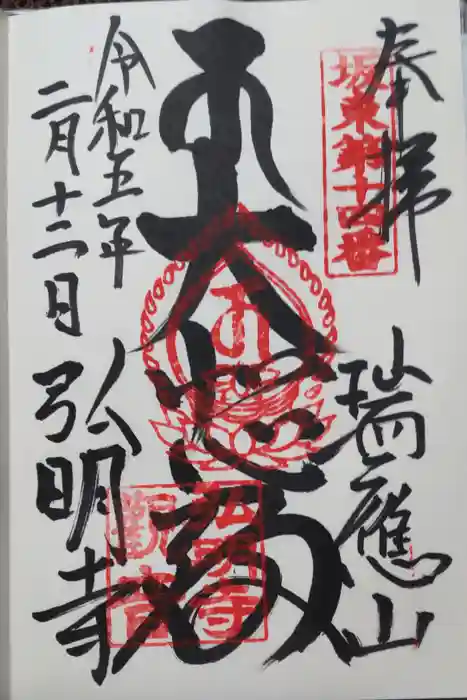 奉拝
坂東第十四番
瑞應山
大悲殿
弘明寺
觀音
令和五年
二月十二日
弘明寺